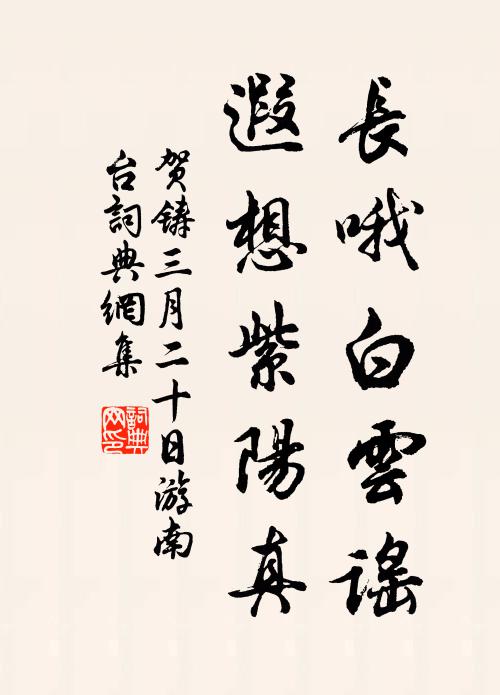 長哦白雲謠
遐想紫陽真
贺鑄三月二十日游南
台詞典網集
詞典
网印